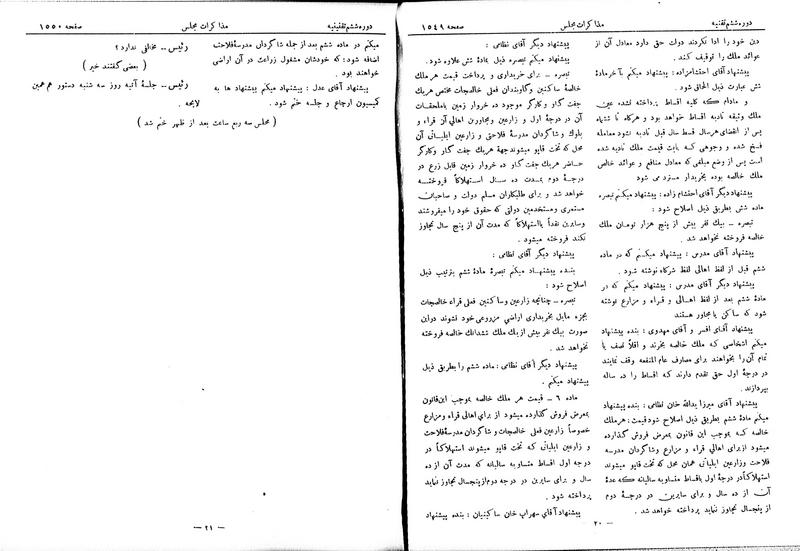 دوره ششم تقنینیه مذاکرات مجلس صفحه ۱۵۴۹
دین خود را ادا نکردند دولت حق دارد معادل آن از
عوائد ملک را توقیف کنند .
پیشنهاد آقای احتشام‌زاده : پیشنهاد میکنم بآخر مادهٔ
شش عبارت ذیل الحاق شود .
و مادام که کلیه اقساط پرداخته نشده عین
ملک وثیقه تادیه اقساط خواهد بود و هرگاه تا شش‌ماه
پس از انقضای هر سال قسط سال قبل تادیه نشود معامله
فسخ شده و وجوهی که بابت قیمت ملک تادیه شده
است پس از وضع مبلغی که معادل منافع و عوائد خالص
ملک خالصه بوده بخریدار مسترد می شود
پیشنهاد دیگر آقای احتشام زاده : پیشنهاد میکنم تبصره
ماده شش بطریق ذیل اصلاح شود :
تبصره – بیک نفر بیش از پنج هزار تومان ملک
خالصه فروخته نخواهد شد .
پیشنهاد آقای مدرس : پیشنهاد میکنم که در ماده
ششم قبل از لفظ اهالی لفظ شرکاء نوشته شود .
پیشنهاد دیگر آقای مدرس : پیشنهاد میکنم که در
مادهٔ ششم بعد از لفظ اهالی و قراء و مزارع نوشته
شود که ساکن یا مجاور هستند
پیشنهاد آقای افسر و آقای مهدوی : بنده پیشنهاد
میکنم اشخاصی که ملک خالصه بخرند و اقلاً نصف یا
تمام آن را بخواهند برای مصارف عام المنفعه وقف نمایند
در درجهٔ اول حق تقدم دارند که اقساط را ده ساله
بپردازند .
پیشنهاد آقای میرزا یدالله خان نظامی : بنده پیشنهاد
میکنم مادهٔ ششم بطریق ذیل اصلاح شود قیمت : هر ملک
خالصه که بموجب این قانون بمعرض فروش گذارده
میشود از برای اهالی قراء و مزارع و شاگردان مدرسه
فلاحت و زارعین ایلیاتی همان محل که تخت قاپو میشوند
استهلاکاً در درجهٔ اول باقساط متساویه سالیانه که عدهٔ
آن از ده سال و برای سایرین در درجهٔ دوم
از پنجسال تجاوز نماید پرداخته خواهد شد .
– ۲۰ –
دوره ششم تقنینیه مذاکرات مجلس صفحه ۱۵۵۰
پیشنهاد دیگر آقای نظامی :
پیشنهاد میکنم تبصره ذیل بمادهٔ شش علاوه شود .
تبصره – برای خریداری و پرداخت قیمت هر ملک
خالصه ساکنین و گاوبندان فعلی خالصجات مختص هر یک
جفت گاو و کارگر موجود ده خروار زمین با ملحقات
آن در درجهٔ اول و زارعین و مجاورین اهالی آن قراء و
بلوک و شاگردان مدرسهٔ فلاحتی و زارعین ایلیاتی آن
محل که تخت قاپو میشوند جهة هر یک جفت گاو و کارگر
حاضر هر یک جفت گاو ده خروار زمین قابل زرع در
درجهٔ دوم بمدت ده سال استهلاکاً فروخته
خواهد شد و برای طلبکاران مسلم دولت و صاحبان
مستمری و مستخدمین دولتی که حقوق خود را میفروشند
و سایرین نقداً یا استهلاکاً که مدت آن از پنج سال تجاوز
نکند فروخته میشود .
پیشنهاد دیگر آقای نظامی :
بنده پیشنهاد میکنم تبصرهٔ مادهٔ ششم بترتیب ذیل
اصلاح شود :
تبصره – چنانچه زارعین و ساکنین فعلی قراء خالصجات
بجزء مایل بخریداری اراضی مزروعی خود نشوند در این
صورت بیک نفر بیش از یک ملک ششدانگ خالصه فروخته
نخواهد شد .
پیشنهاد دیگر آقای نظامی : ماده ششم را بطریق ذیل
پیشنهاد میکنم .
ماده ۶ – قیمت هر ملک خالصه بموجب این قانون
بمعرض فروش گذارده میشود از برای اهالی قراء و مزارع
خصوصاً زارعین فعلی خالصجات و شاگردان مدرسه فلاحت
و زارعین ایلیاتی که تخت قاپو میشوند استهلاکاً در
درجه اول اقساط متساویه سالیانه که مدت آن از ده
سال و برای سایرین در درجه دوم از پنجسال تجاوز نماید
پرداخته شود .
پیشنهاد آقای سهراب خان ساکینیان : بنده پیشنهاد
میکنم در ماده ششم بعد از جمله شاگردان مدرسهٔ فلاحت
اضافه شود : که خودشان مشغول زراعت در آن اراضی
خواهند بود .
پیشنهاد آقای عدل : پیشنهاد میکنم پیشنهاد ها به
کمیسیون ارجاع و جلسه ختم شود .
رئیس – مخالفی ندارد ؟
( بعضی گفتند خیر )
رئیس – جلسهٔ آتیه روز سه شنبه دستور هم همین
لایحه .
( مجلس سه ربع ساعت بعد از ظهر ختم شد )
– ۲۱ –